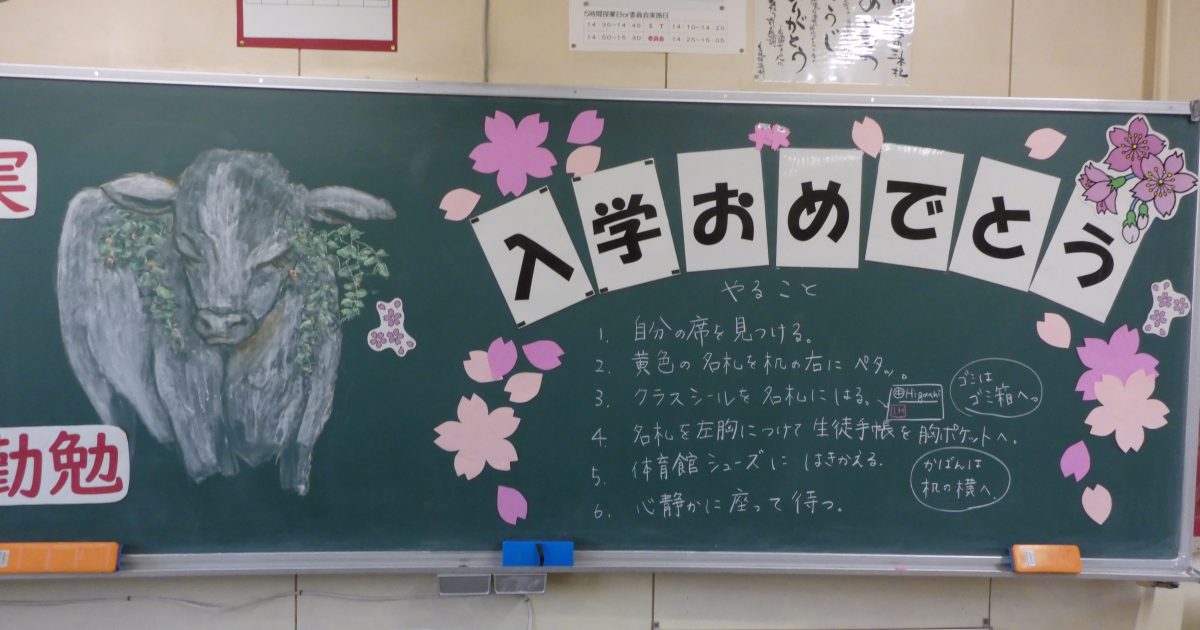 5時間授業日or委員会実施日
14:35～14:45 ST 14:10～14:20
14:50～15:30 委員会 14:25～15:05
ありがとう
実
勤勉
入学おめでとう
やること
1. 自分の席を見つける。
2. 黄色の名札を机の右にペタッ。
3. クラスシールを名札にはる。
Higashi
1H
ゴミは
ゴミ箱へ。
4. 名札を左胸につけて生徒手帳を胸ポケットへ。
5. 体育館シューズにはきかえる。
かばんは
机の横へ。
6. 心静かに座って待つ。